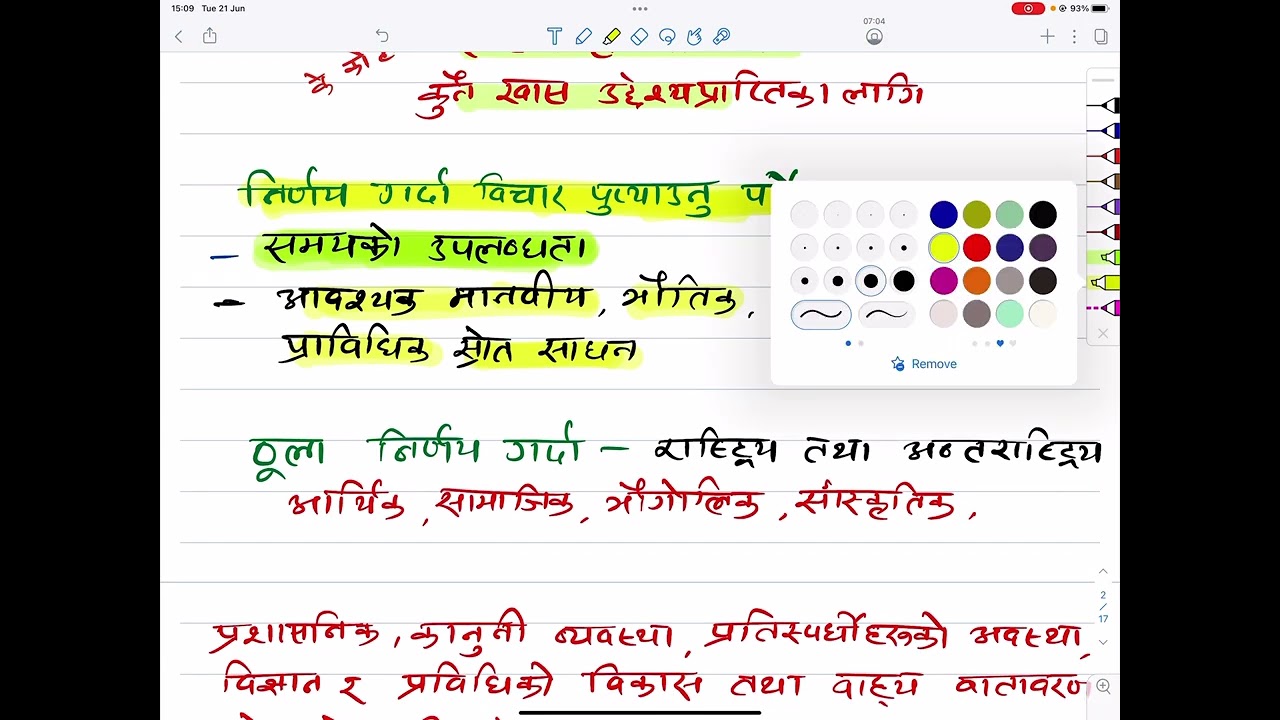 15:09 Tue 21 Jun
93%
07:04
कुनै खास उद्देश्यप्राप्तिका लागि
निर्णय गर्दा विचार पुर्‍याउनु पर्ने
- समयको उपलब्धता
- आवश्यक मानवीय, भौतिक,
प्राविधिक स्रोत साधन
Remove
ठूला निर्णय गर्दा - राष्ट्रिय तथा अन्तराष्ट्रिय
आर्थिक, सामाजिक, भौगोलिक, सांस्कृतिक,
2
/
17
प्रशासनिक, कानुनी व्यवस्था, प्रतिस्पर्धीहरूको अवस्था,
विज्ञान र प्रविधिको विकास तथा वाह्य वातावरण